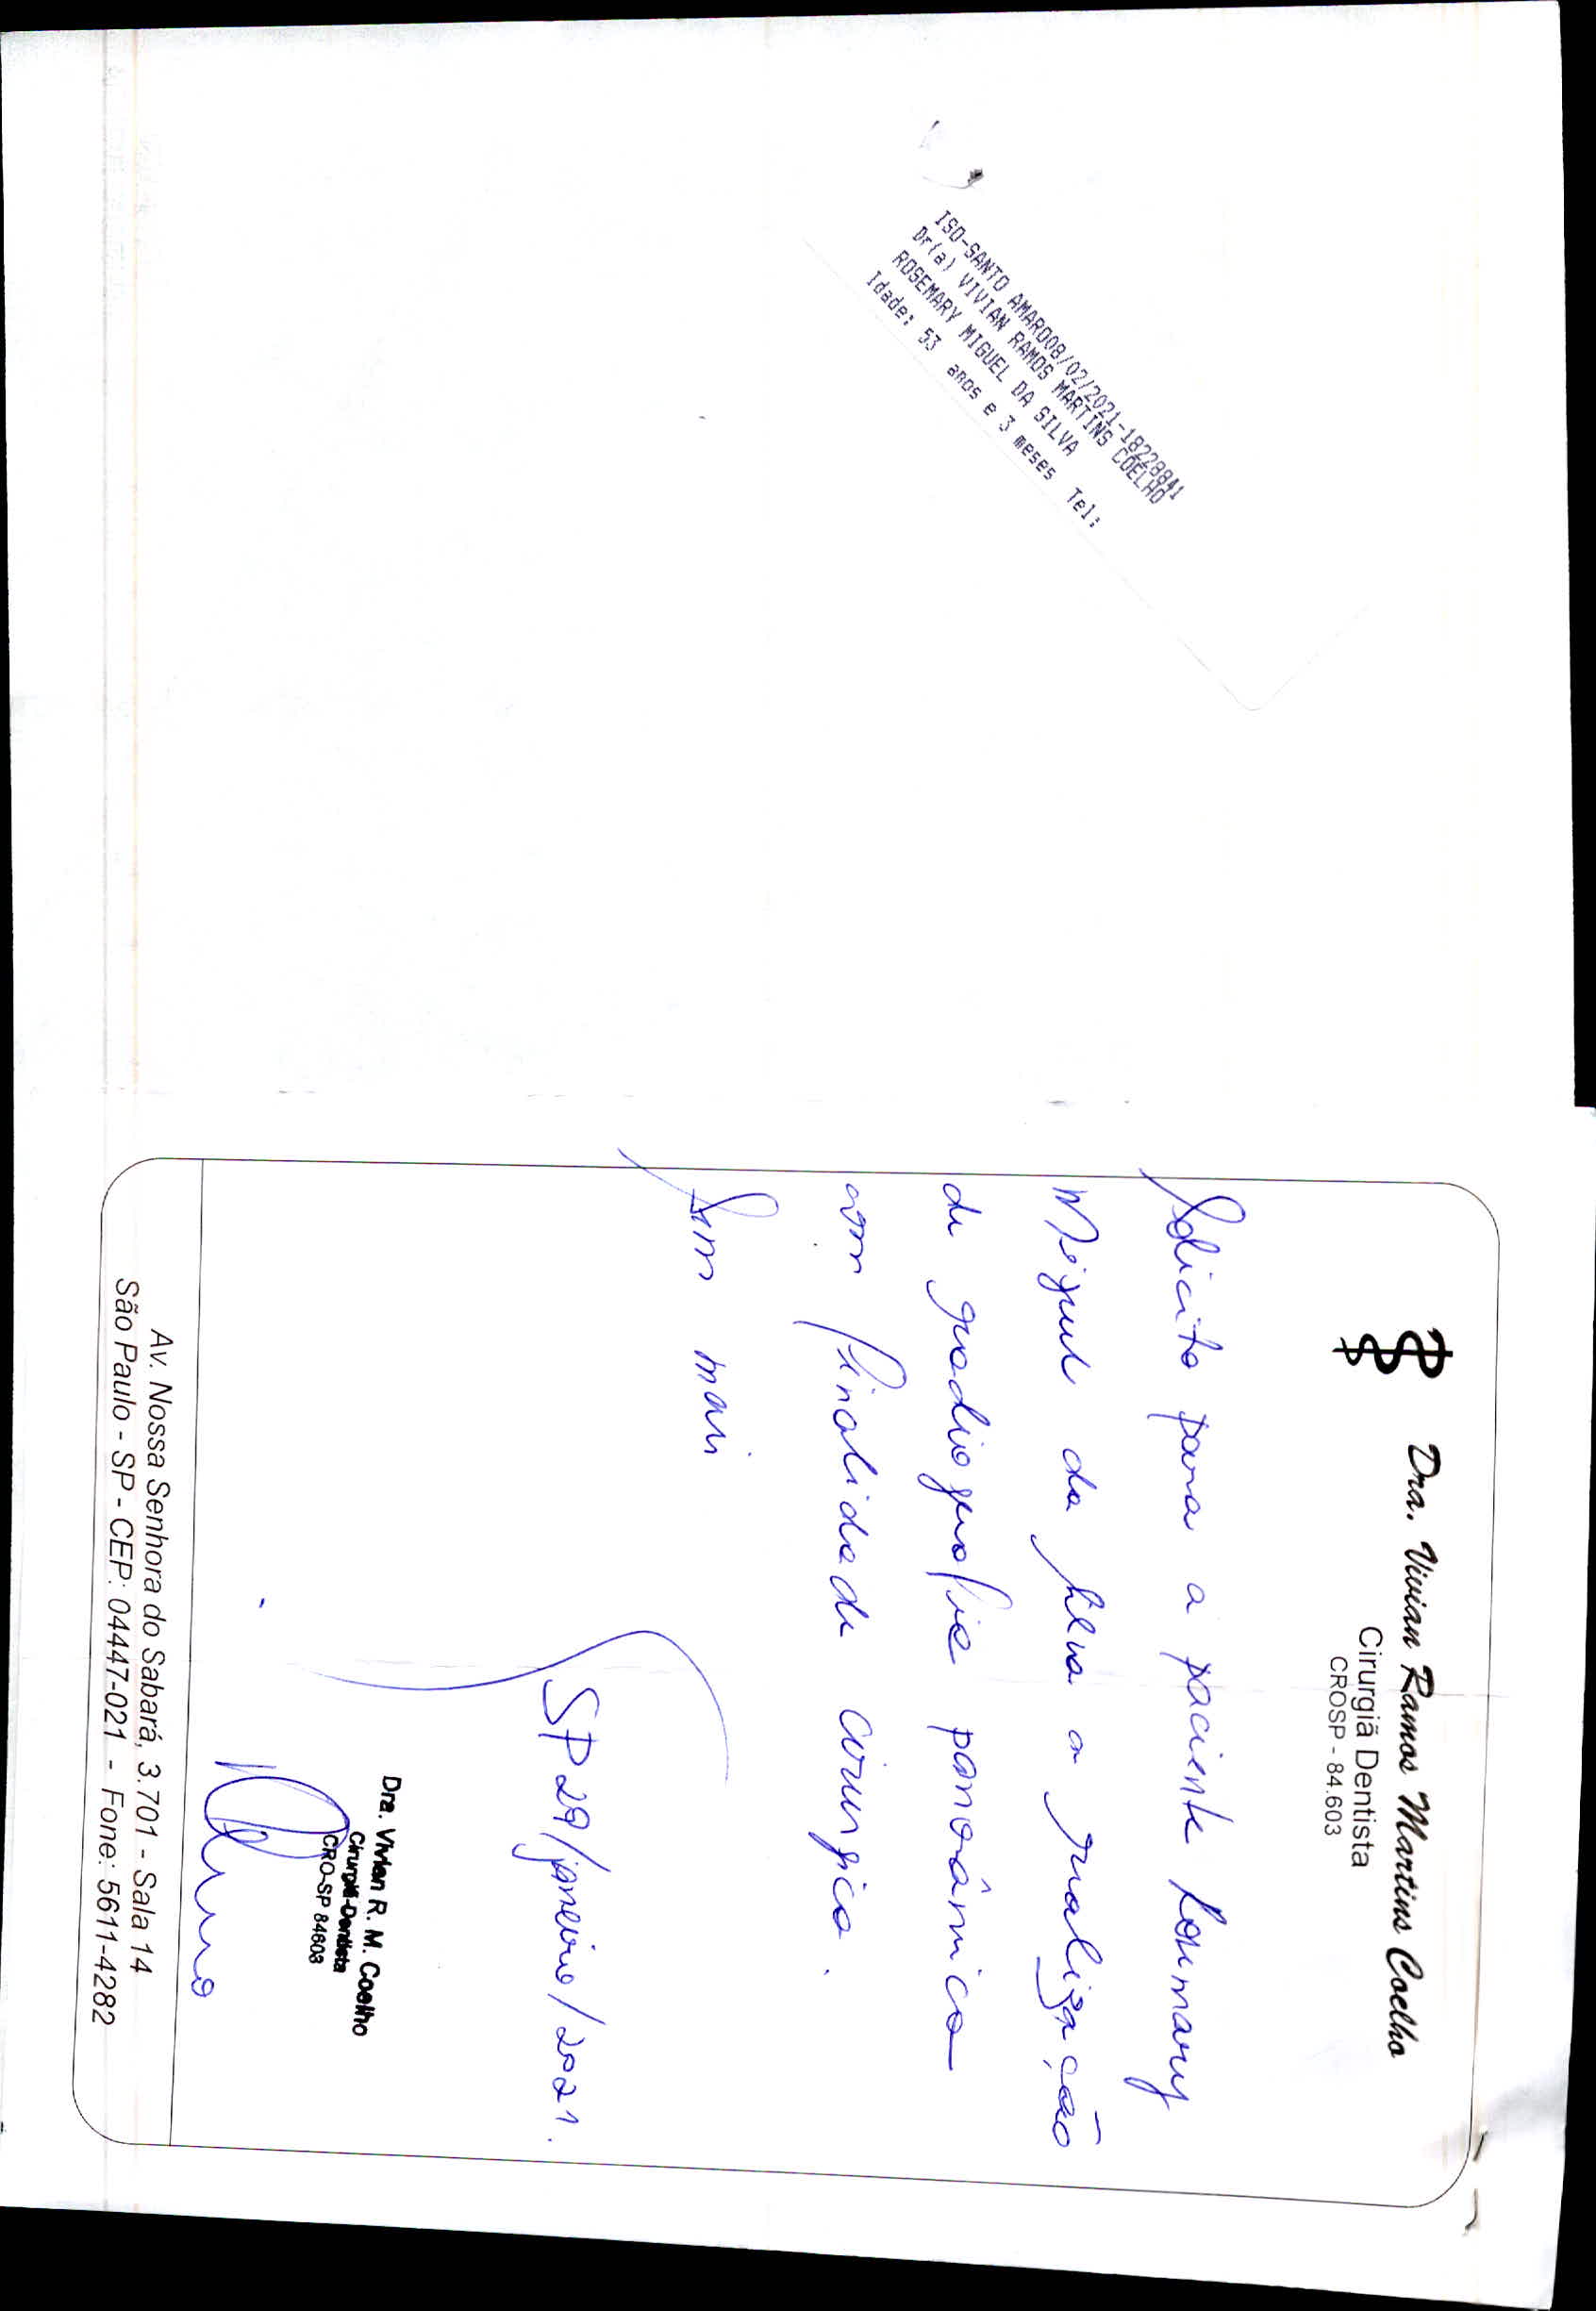 ISO-SANTO AMARO08/02/2021-18228841
Dr(a) VIVIAN RAMOS MARTINS COELHO
ROSEMARY MIGUEL DA SILVA
Idade: 53 anos e 3 meses Tel:
Dra. Vivian Ramos Martins Coelho
Cirurgiã Dentista
CROSP - 84.603
Solicito para a paciente Rosemary
Miguel da Silva a realização
de radiografia panorâmica
com finalidade cirurgica.
Sem mais
SP 29/janeiro/2021.
Dra. Vivian R. M. Coelho
Cirurgiã-Dentista
CRO-SP 84603
Av. Nossa Senhora do Sabará, 3.701 - Sala 14
São Paulo - SP - CEP: 04447-021 - Fone: 5611-4282